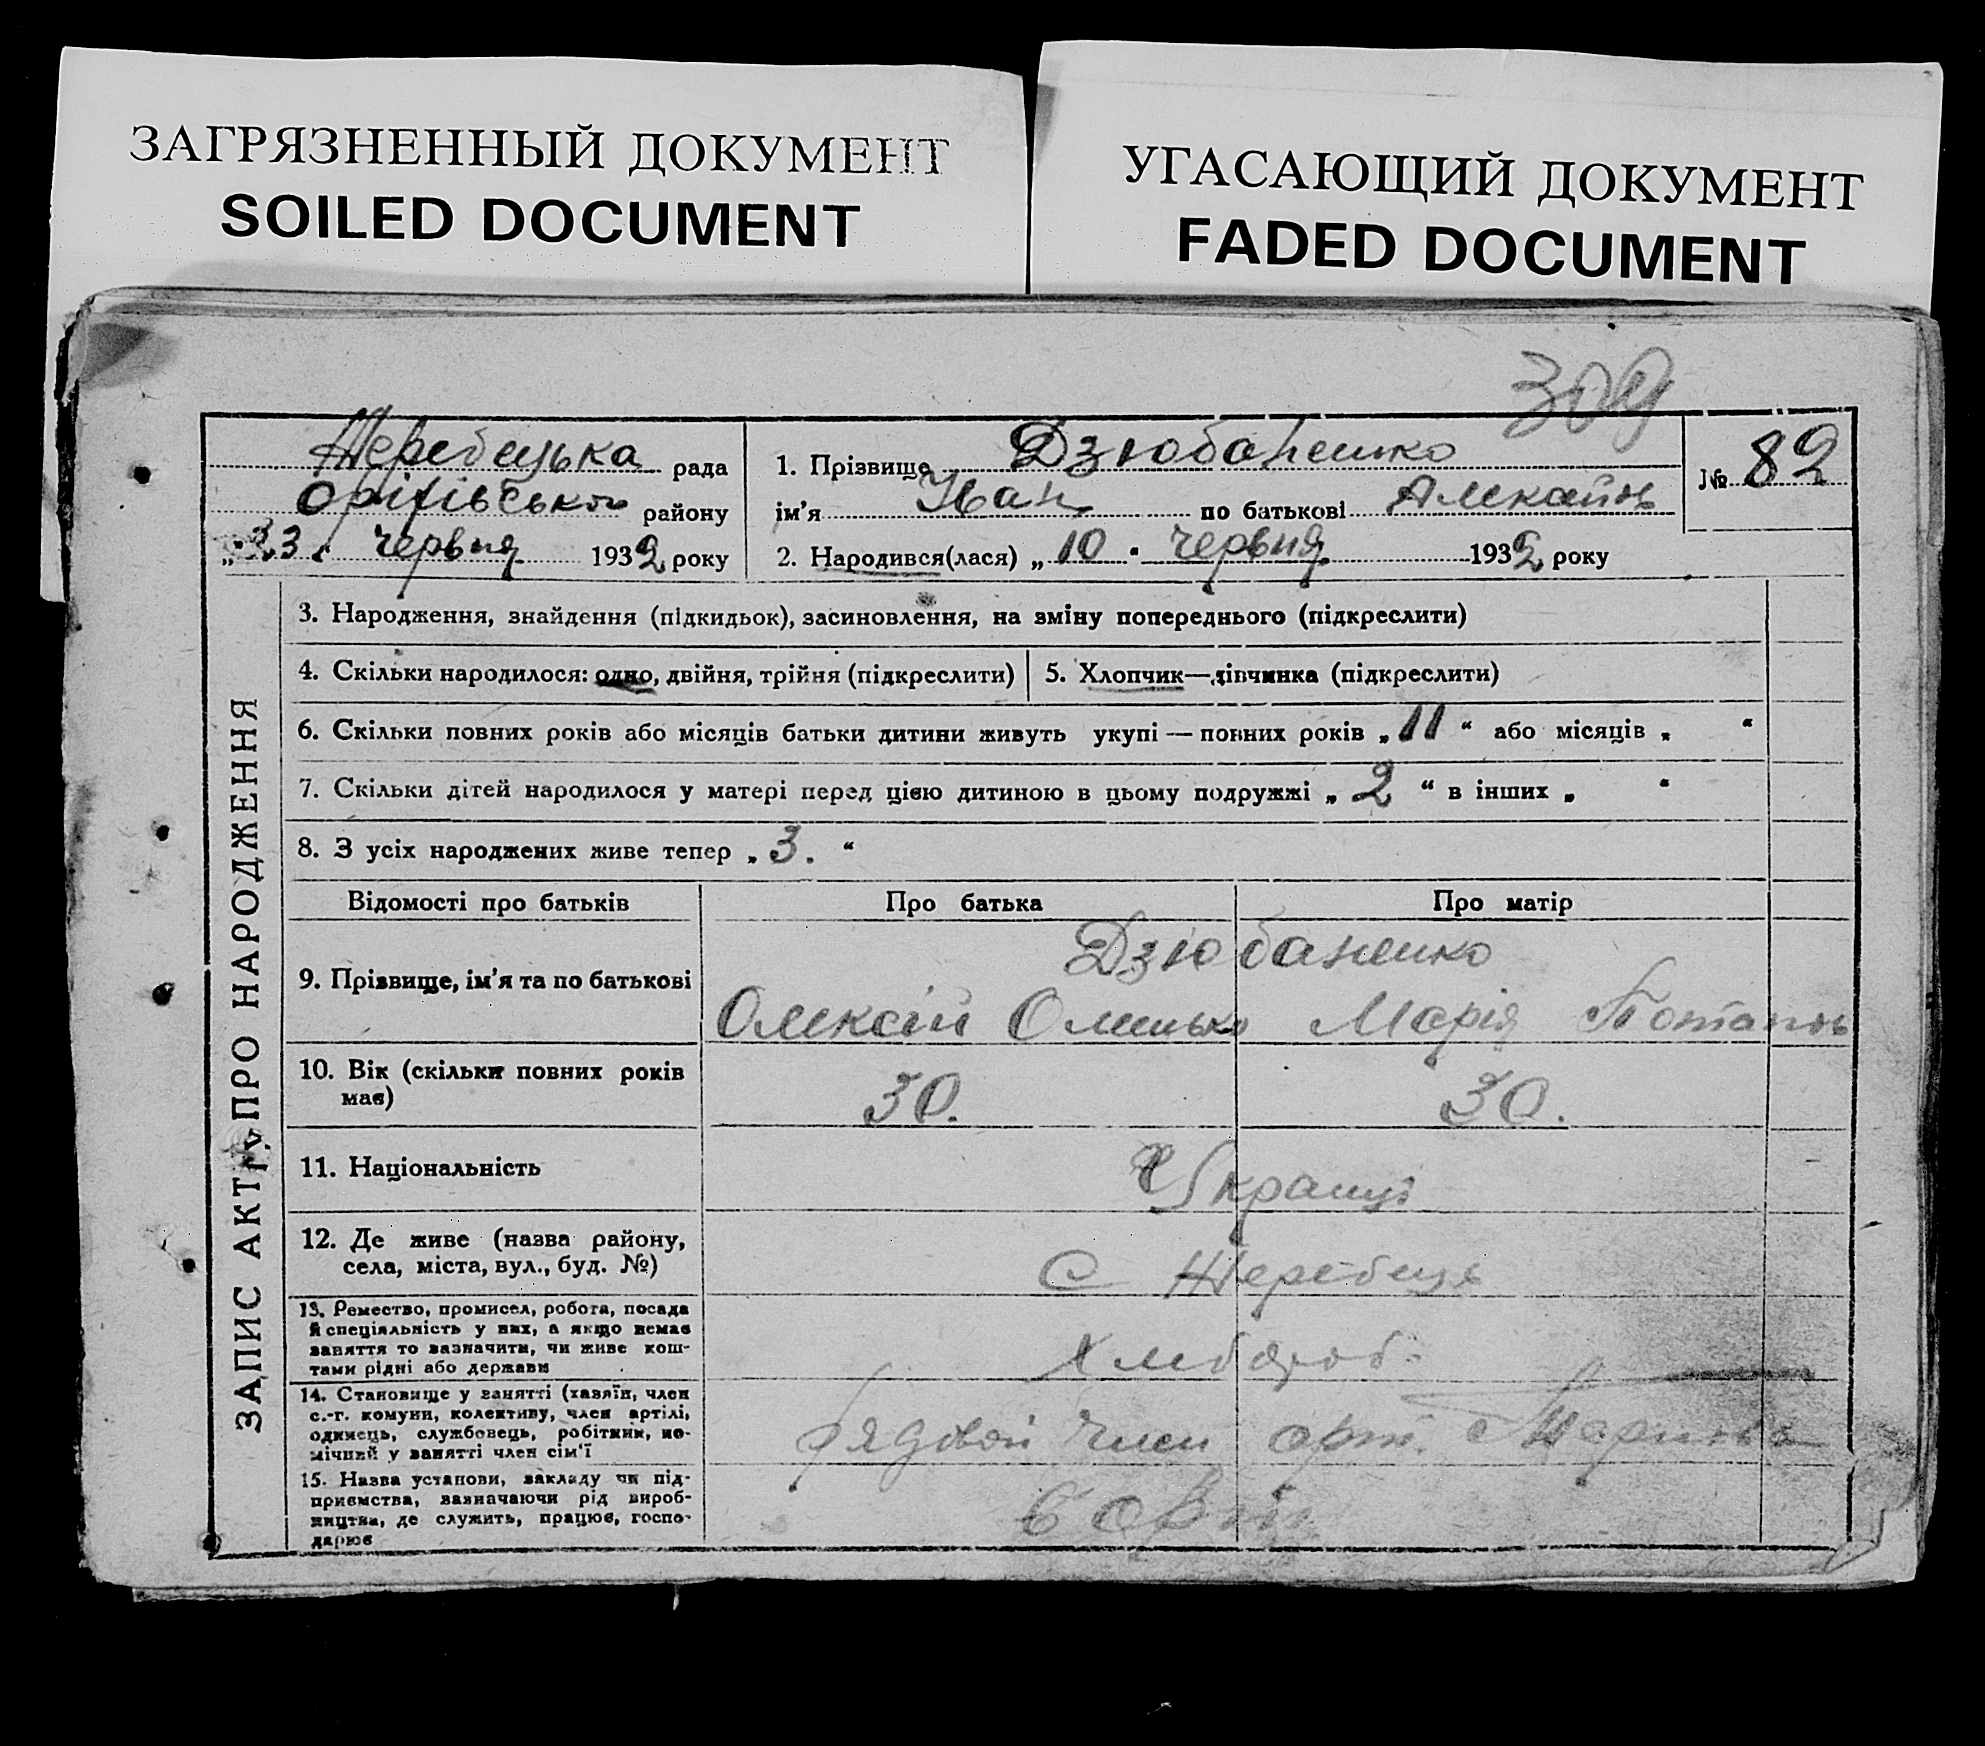 ЗАГРЯЗНЕННЫЙ ДОКУМЕНТ
SOILED DOCUMENT
УГАСАЮЩИЙ ДОКУМЕНТ
FADED DOCUMENT
309
Жеребецька рада
Оріхівського району
„23. червня 1932 року
1. Прізвище Дзюбаненко
ім'я Иван по батькові
2. Народився(лася) „10 . червня 1932 року
№ 82
ЗАПИС АКТУ ПРО НАРОДЖЕННЯ
3. Народження, знайдення (підкидьок), засиновлення, на зміну попереднього (підкреслити)
4. Скільки народилося: одно, двійня, трійня (підкреслити)
5. Хлопчик—дівчинка (підкреслити)
6. Скільки повних років або місяців батьки дитини живуть укупі — повних років „ 11 “ або місяців „ “
7. Скільки дітей народилося у матері перед цією дитиною в цьому подружжі „ 2 “ в інших „ “
8. З усіх народжених живе тепер „ 3. “
Відомості про батьків
Про батька
Про матір
9. Прізвище, ім'я та по батькові
Дзюбаненко
Олексій Марія Потапов
10. Вік (скільки повних років
має)
30.
30.
11. Національність
Украінці
12. Де живе (назва району,
села, міста, вул., буд. №)
С Жеребець
13. Ремество, промисел, робота, посада
й спеціяльність у них, а якщо немає
заняття то зазначити, чи живе кош-
тами рідні або держави
Хлебороб.
14. Становище у занятті (хазяїн, член
с.-г. комуни, колективу, член артілі,
одинець, службовець, робітник, по-
мічний у занятті член сім'ї
рядовой член арт.
15. Назва установи, закладу чи під-
приємства, зазначаючи рід вироб-
ництва, де служить, працює, госпо-
дарює